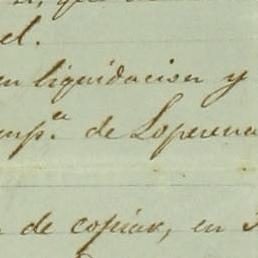 el.
en liquidacion y
omp.ª de Loperena
de copiar, en 3